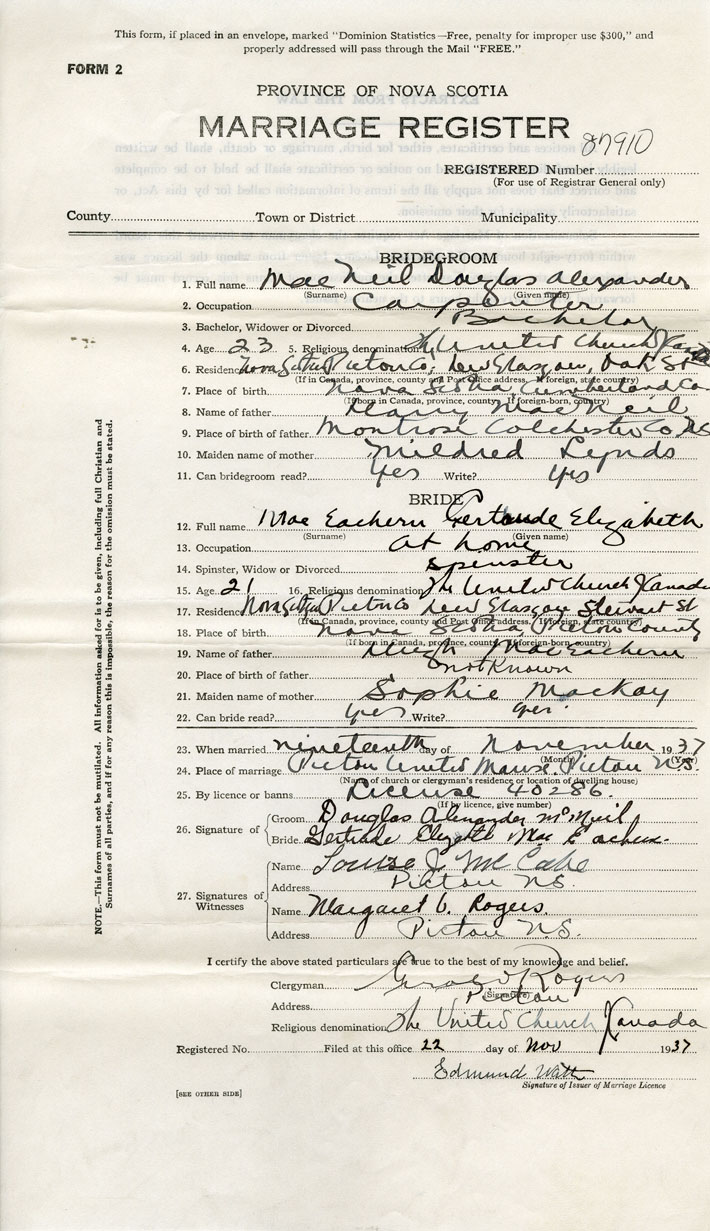 This form, if placed in an envelope, marked "Dominion Statistics—Free, penalty for improper use $300," and
properly addressed will pass through the Mail "FREE."
FORM 2
PROVINCE OF NOVA SCOTIA
MARRIAGE REGISTER
87910
REGISTERED Number
(For use of Registrar General only)
County Town or District Municipality
BRIDEGROOM
1. Full name Mac Neil Douglas Alexander
(Surname) (Given name)
2. Occupation Carpenter
3. Bachelor, Widower or Divorced Bachelor
4. Age 23 5. Religious denomination The United Church Canada
6. Residence Nova Scotia Pictou Co, New Glasgow, Oak St
(If in Canada, province, county and Post Office address. If foreign, state country)
7. Place of birth Nova Scotia, Cumberland Co
(If born in Canada, province, county. If foreign-born, country)
8. Name of father Harry MacNeil
9. Place of birth of father Montrose Colchester Co NS
10. Maiden name of mother Mildred Lynds
11. Can bridegroom read? Yes Write? Yes
BRIDE
12. Full name Mac Eachern Gertrude Elizabeth
(Surname) (Given name)
13. Occupation At home
14. Spinster, Widow or Divorced Spinster
15. Age 21 16. Religious denomination The United Church Canada
17. Residence Nova Scotia Pictou Co New Glasgow Stewart St
(If in Canada, province, county and Post Office address. If foreign, state country)
18. Place of birth Nova Scotia, Pictou County
(If born in Canada, province, county. If foreign-born, country)
19. Name of father Hugh MacEachern
20. Place of birth of father not Known
21. Maiden name of mother Sophie MacKay
22. Can bride read? yes Write? yes.
23. When married nineteenth day of November 1937
(Month) (Year)
24. Place of marriage Pictou United Manse, Pictou N.S.
(Name of church or clergyman's residence or location of dwelling house)
25. By licence or banns License 40286.
(If by licence, give number)
26. Signature of
Groom Douglas Alexander McNeil
Bride Gertrude Elizabeth Mac Eachern.
27. Signatures of Witnesses
Name Louise J. McCabe
Address Pictou NS.
Name Margaret Rogers.
Address Pictou N.S.
I certify the above stated particulars are true to the best of my knowledge and belief.
Clergyman Rogers
(Signature)
Address Pictou
Religious denomination The United Church Canada
Registered No. Filed at this office 22 day of Nov 1937
Edmund Watt
Signature of Issuer of Marriage Licence
[SEE OTHER SIDE]
NOTE.—This form must not be mutilated. All information asked for is to be given, including full Christian and
Surnames of all parties, and if for any reason this is impossible, the reason for the omission must be stated.